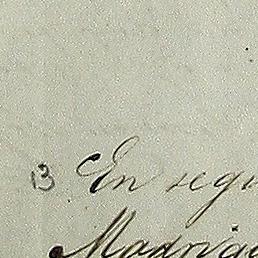 13 En segu
Madriga